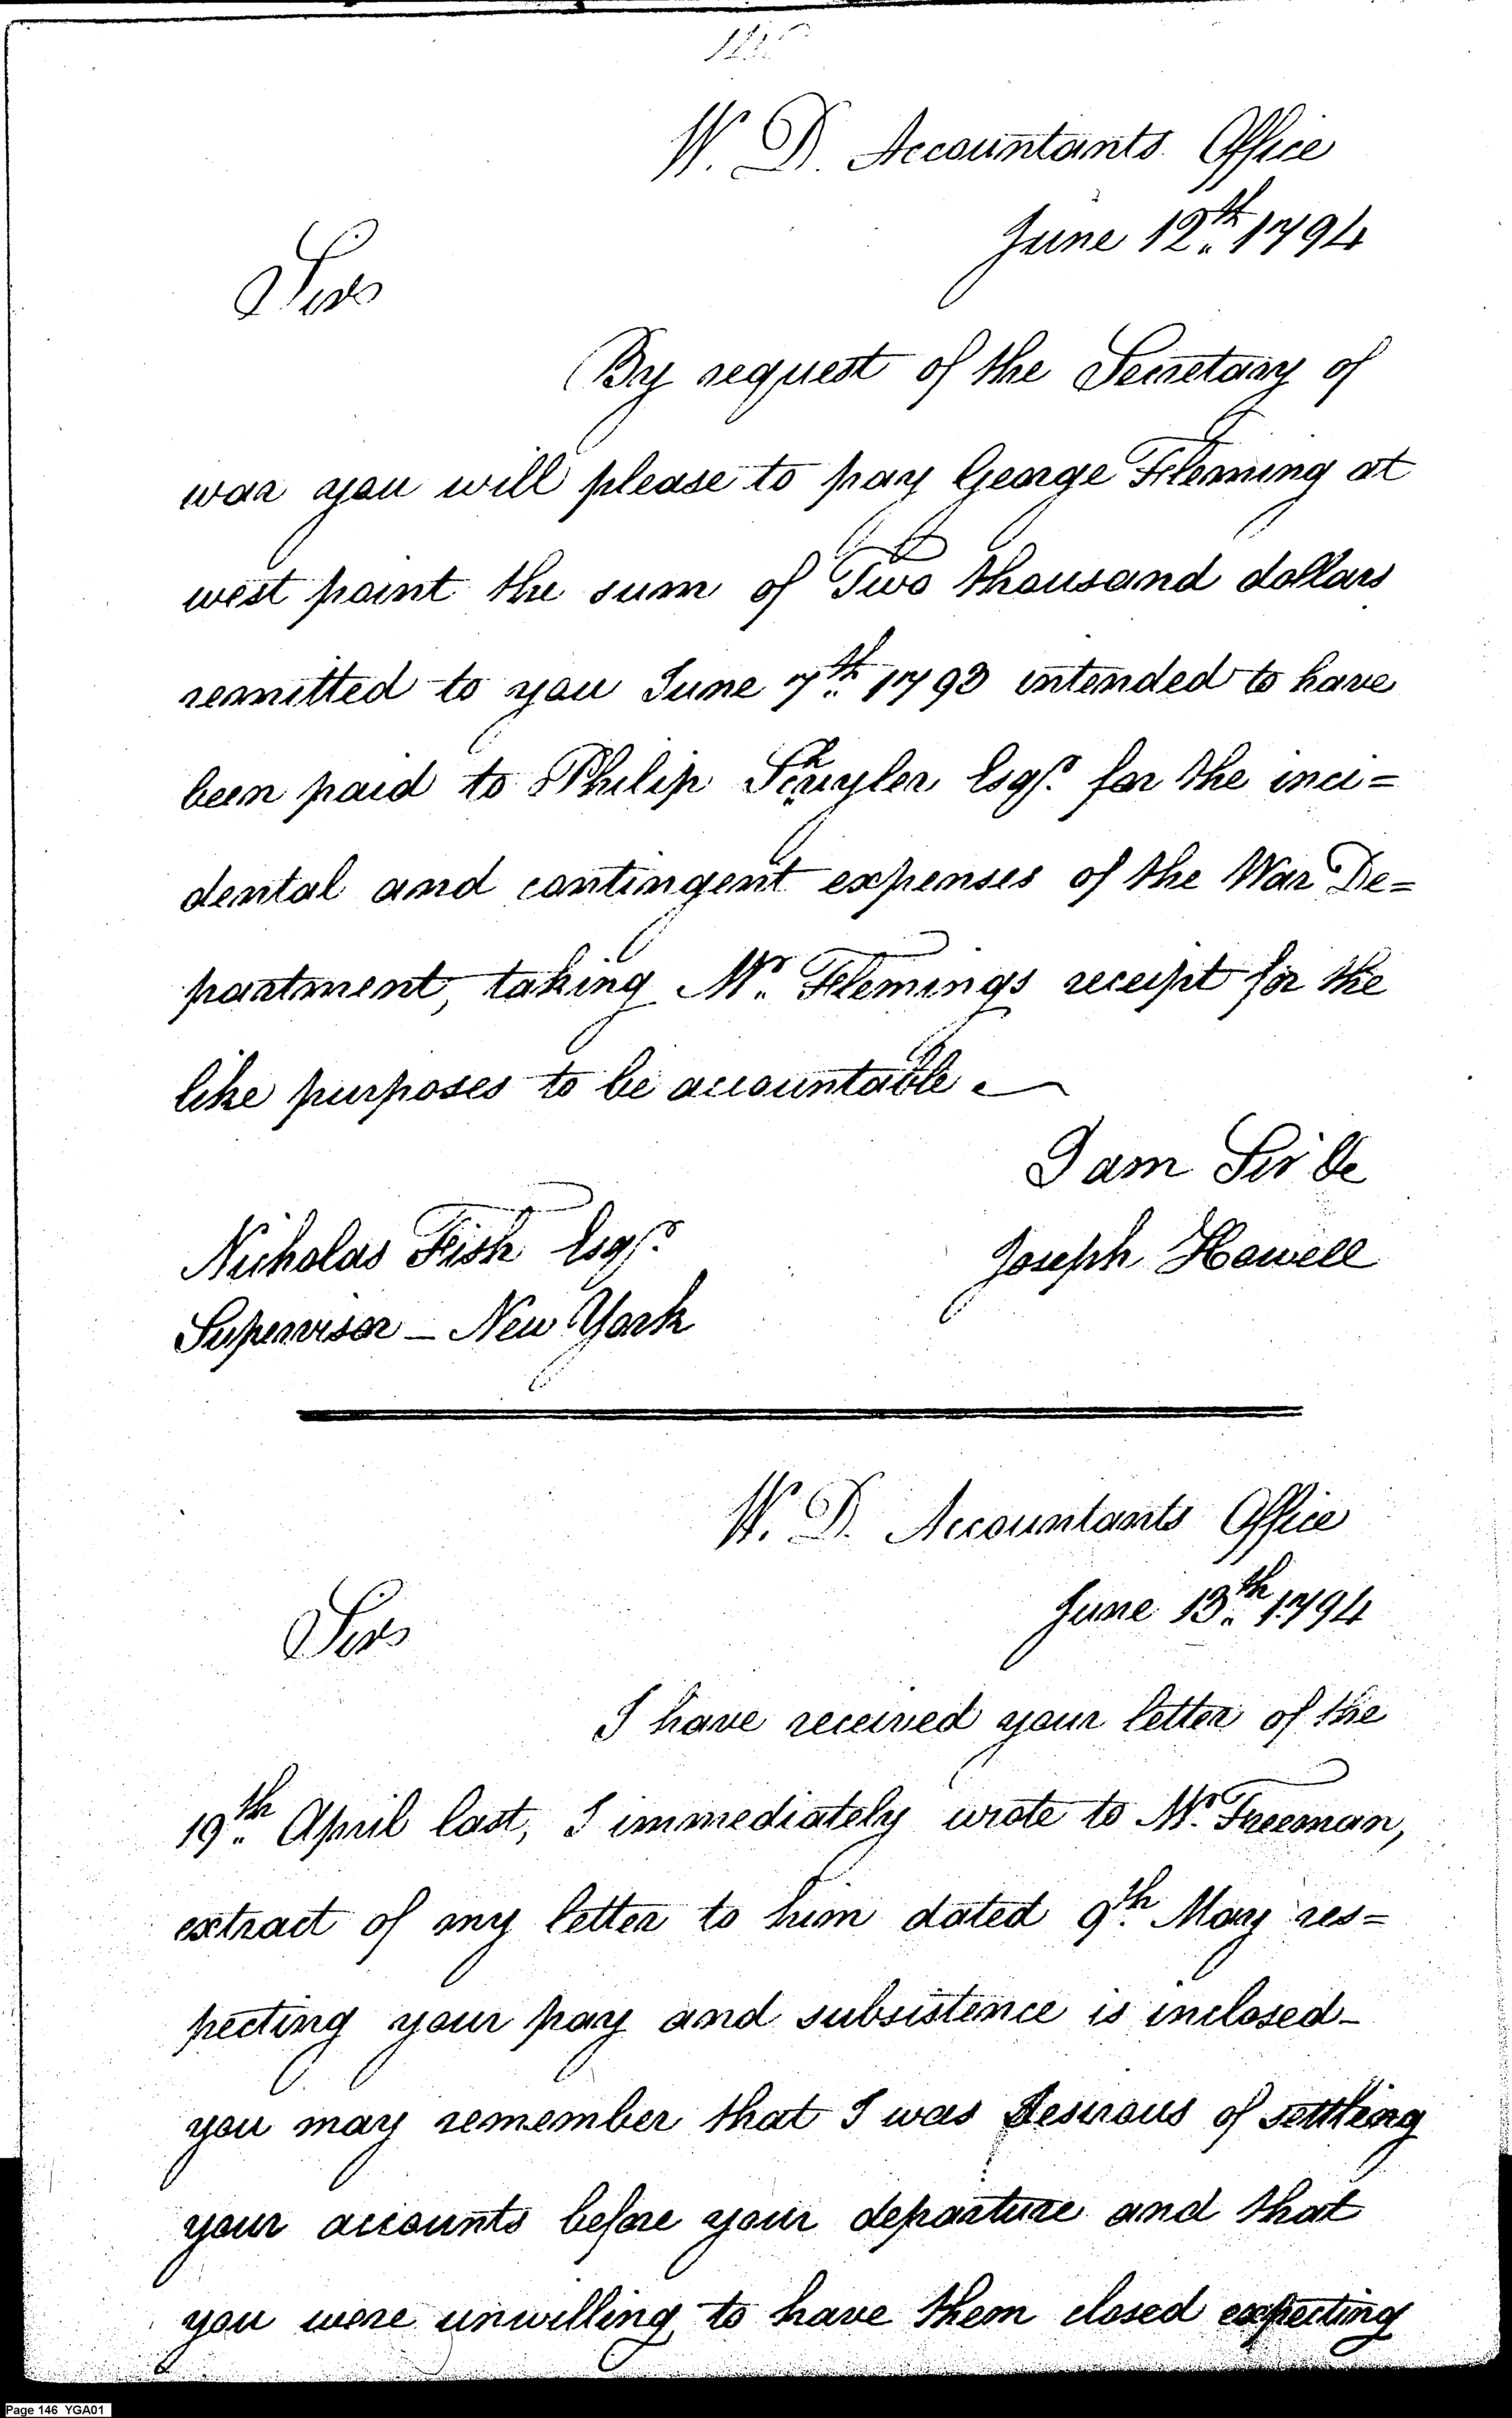 W. D. Accountants Office
June 12th. 1794
Sir
By request of the Secretary of
war you will please to pay George Fleming at
west point the sum of Two thousand dollars
remitted to you June 7th. 1793 intended to have
been paid to Philip Schuyler Esqr. for the inci=
dental and contingent expenses of the War De=
partment, taking Mr. Flemings receipt for the
like purposes to be accountable.
I am Sir &c
Joseph Howell
Nicholas Fish Esqr.
Supervisor - New York
W. D. Accountants Office
June 13th. 1794
Sir
I have received your letter of the
19th. April last, I immediately wrote to Mr. Freeman,
extract of my letter to him dated 9th. May res=
pecting your pay and subsistence is inclosed -
you may remember that I was desirous of settling
your accounts before your departure and that
you were unwilling to have them closed expecting
Page 146 YGA01